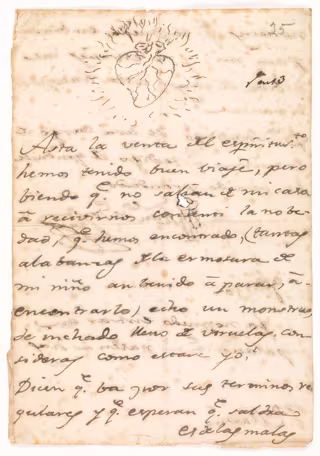 25
Asta la venta del espiritusto
hemos tenido buen viaje, pero
biendo q.e no salian de mi casa
a recivirnos conteni la nobe-
dad, q.e hemos encontrado, (tantas
alabanzas de la ermosura de
mi niño an benido a parar, a-
encontrarlo) echo un monstruo,
de inchado lleno de viruelas, con
sideras como estare yo,
Dicen q.e ba por sus terminos re
gulares y q.e esperan q.e saldra
es de las malas